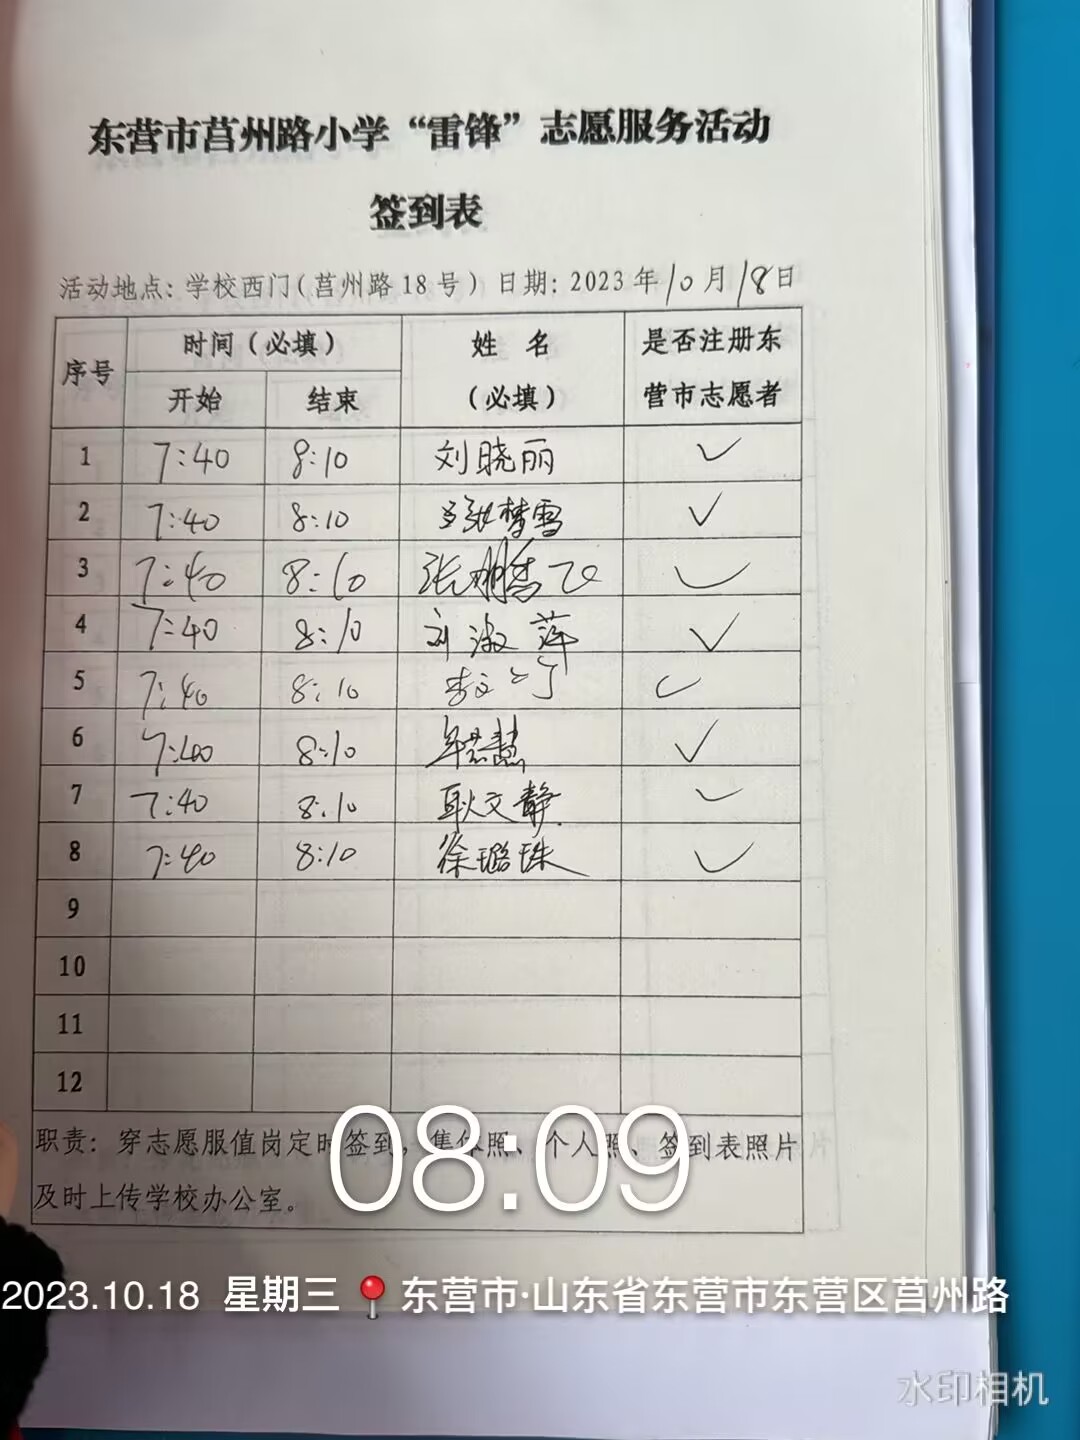 东营市莒州路小学“雷锋”志愿服务活动
签到表
活动地点: 学校西门(莒州路18号) 日期: 2023年10月18日
序号 时间(必填) 姓 名 (必填) 是否注册东营市志愿者
开始 结束
1 7:40 8:10 刘晓丽 ✓
2 7:40 8:10 张梦雪 ✓
3 7:40 8:10 张鹏飞 ✓
4 7:40 8:10 刘淑萍 ✓
5 7:40 8:10 ✓
6 7:40 8:10 ✓
7 7:40 8:10 耿文静 ✓
8 7:40 8:10 徐璐珠 ✓
9
10
11
12
职责: 穿志愿服值岗定时签到, 集体照、个人照、签到表照片
及时上传学校办公室。
08:09
2023.10.18 星期三 东营市·山东省东营市东营区莒州路
水印相机